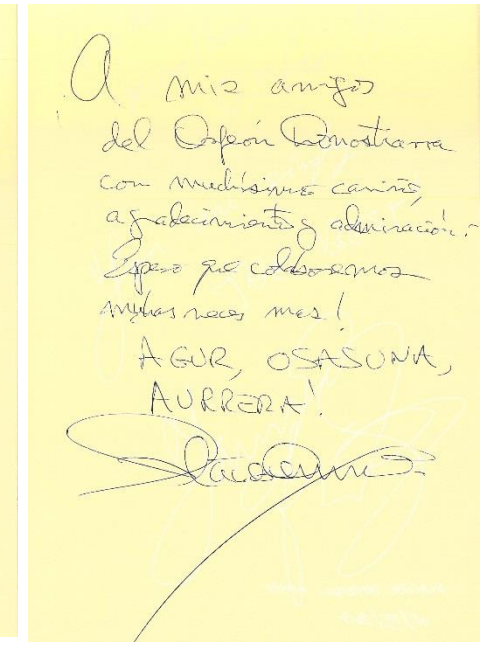 A mis amigos
del Orfeón Donostiarra
con muchísimo cariño,
agradecimiento y admiración.
Espero que colaboremos
muchas veces mas!
AGUR, OSASUNA,
AURRERA!